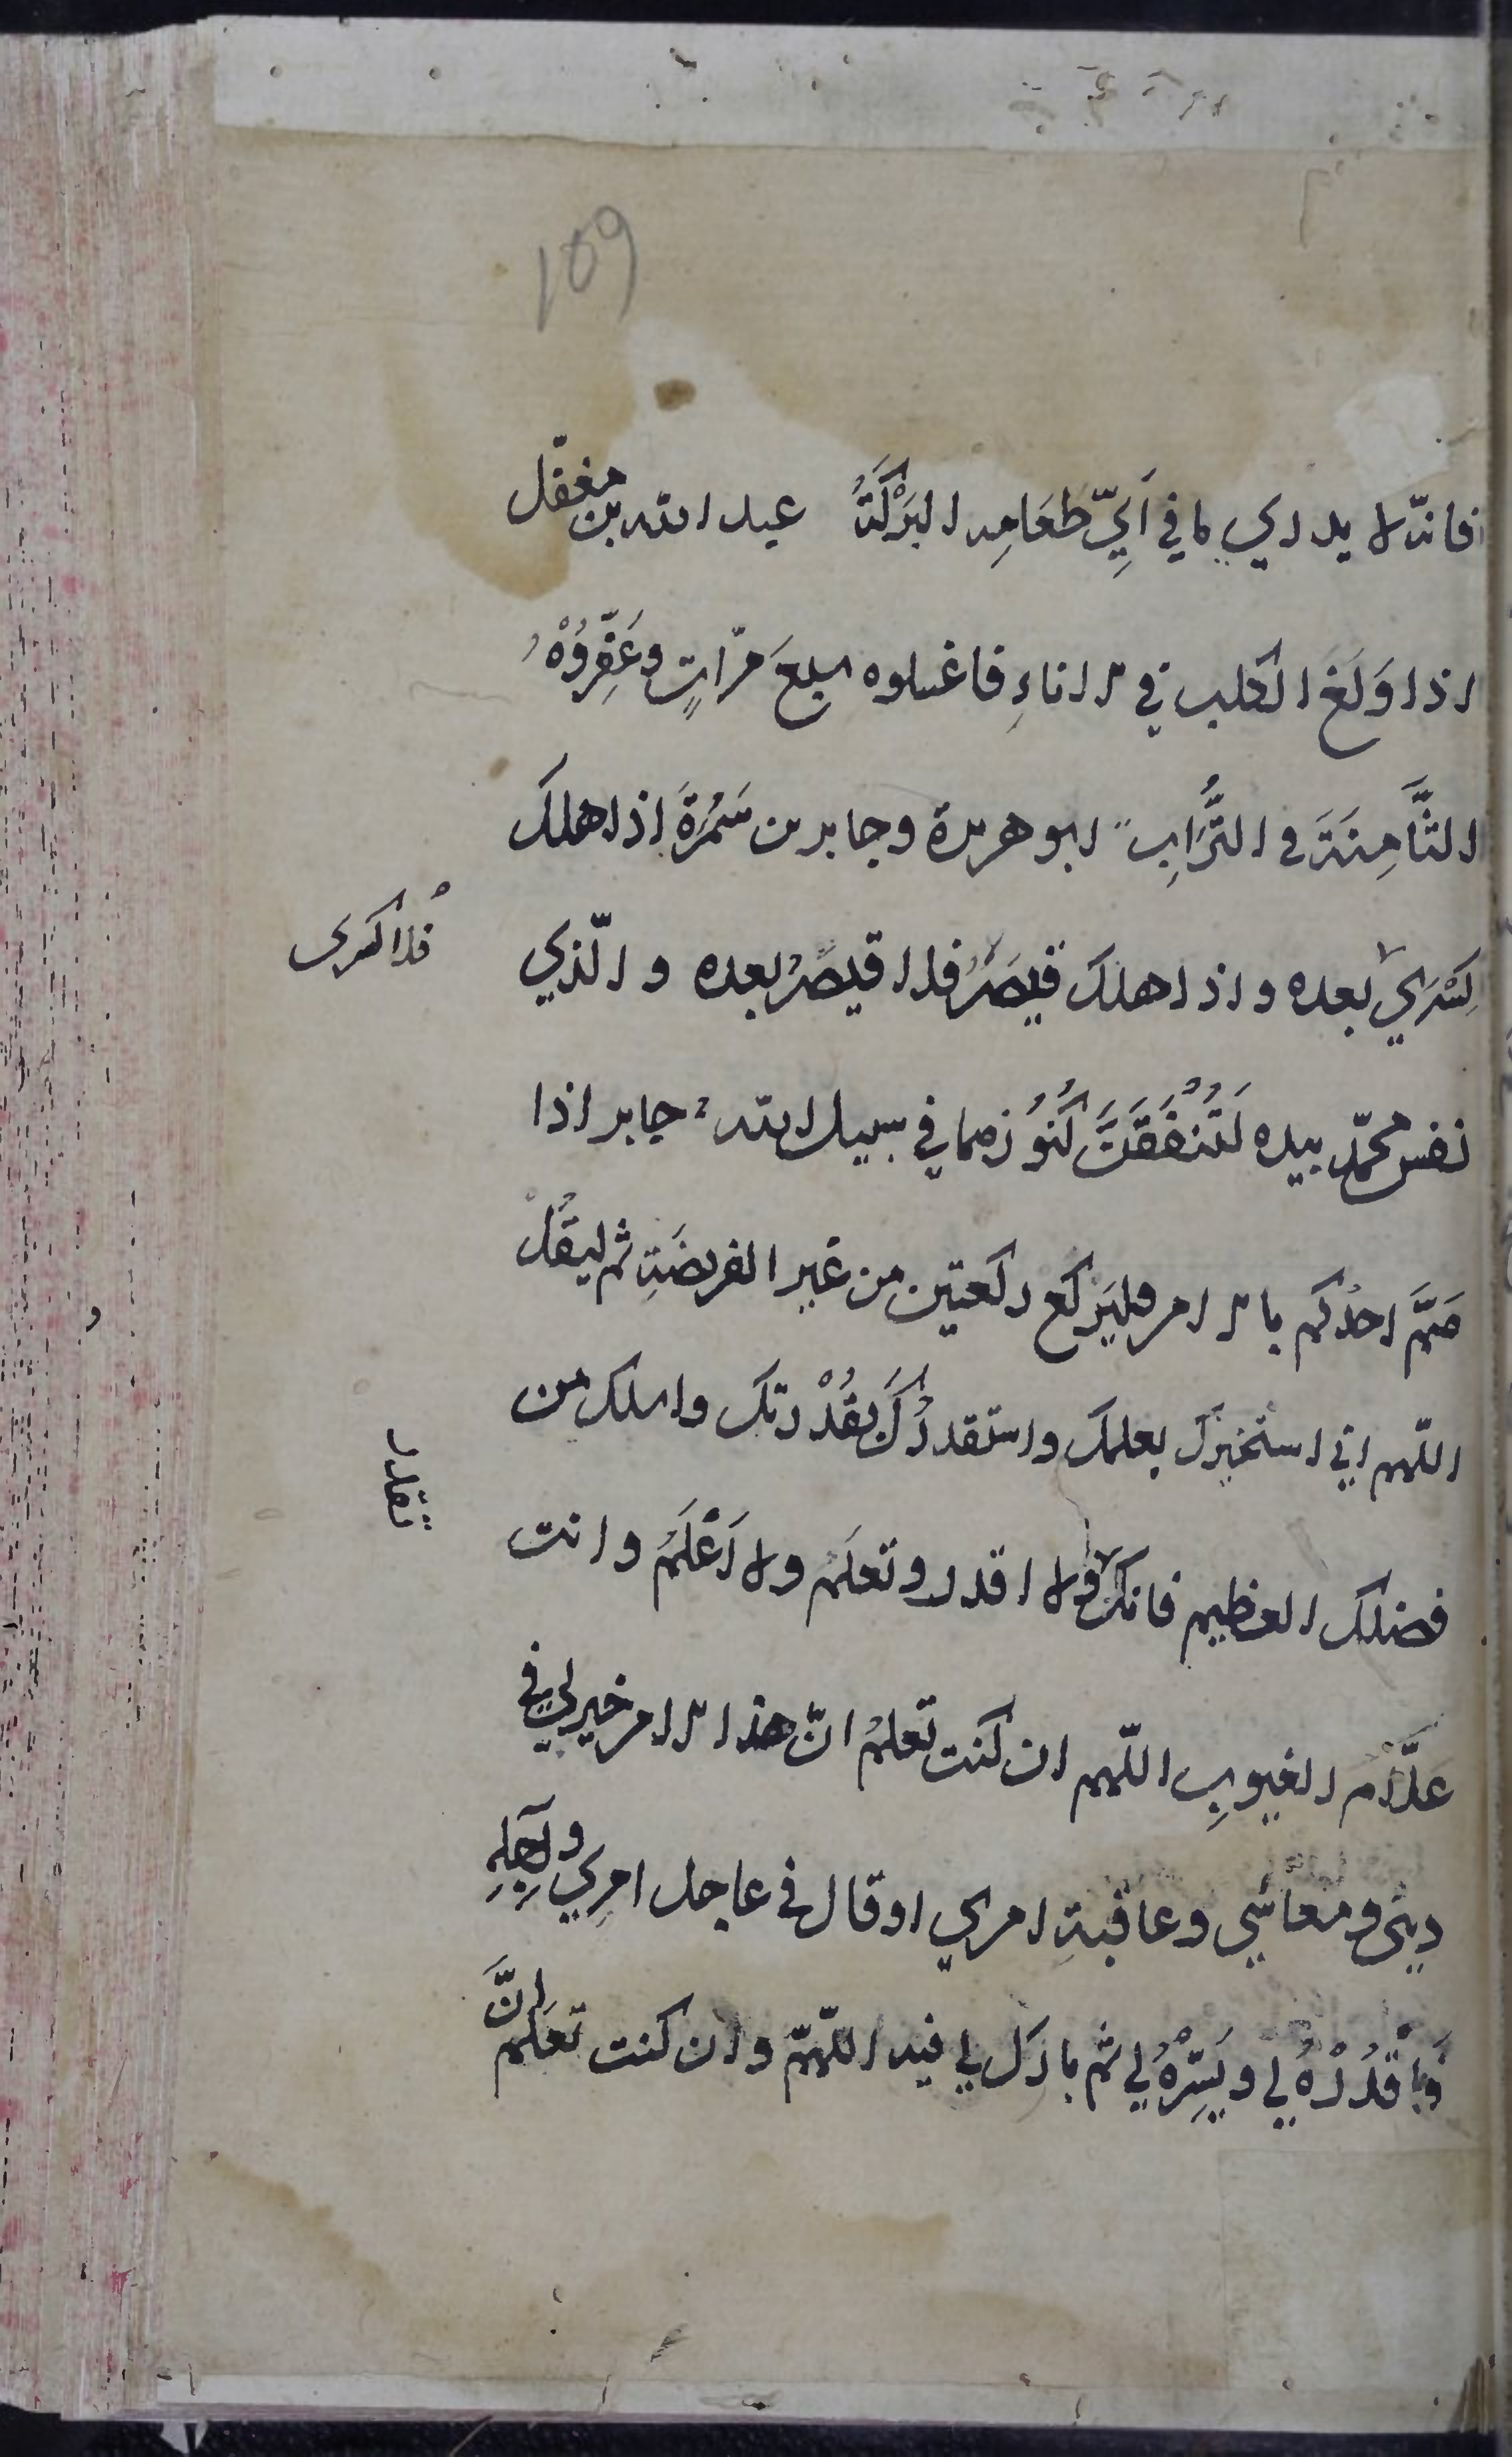 109
فانّه لا يدري ما في أَيِّ طَعَامِه البَرَكَةُ عبد الله بن مغفّل
اذا وَلَغَ الكلب في الاناءِ فاغسلوه سبعَ مرّاتٍ وعَفِّرُوْهُ
الثَّامِنَةَ في التُّرَابِ ابو هريرة وجابر بن سَمُرَةَ اذا هلك
كِسْرَي بعده واذا هلك قيصَرُ فلا قيصَرُ بعده والّذي
فلا كسرى
نفس محمّد بيده لَتُنْفَقَنَّ كُنُوُزهما في سبيل الله جابر اذا
هَمَّ احدُكم بالامر فليَركع ركعتين من غير الفريضَةِ ثم ليقُلْ
اللّهم اني استخيرُك بعلمك واستقدرُكَ بقُدْرتك واسلك من
فضلك العظيم فانك ولا اقدر وتعلَم ولا أَعْلَمُ وانت
تقدر
علَّام الغيوبِ اللّهم ان كنت تعلمُ انّ هذا الامر خير لي في
ديني ومعاشي وعاقبةِ امري اوقال في عاجل امرِي وآجِلِهِ
فَاقْدُرْهُ لي ويَسِّرْهُ لي ثم بارك لي فيه اللّهمّ وان كنت تعلم انَّ